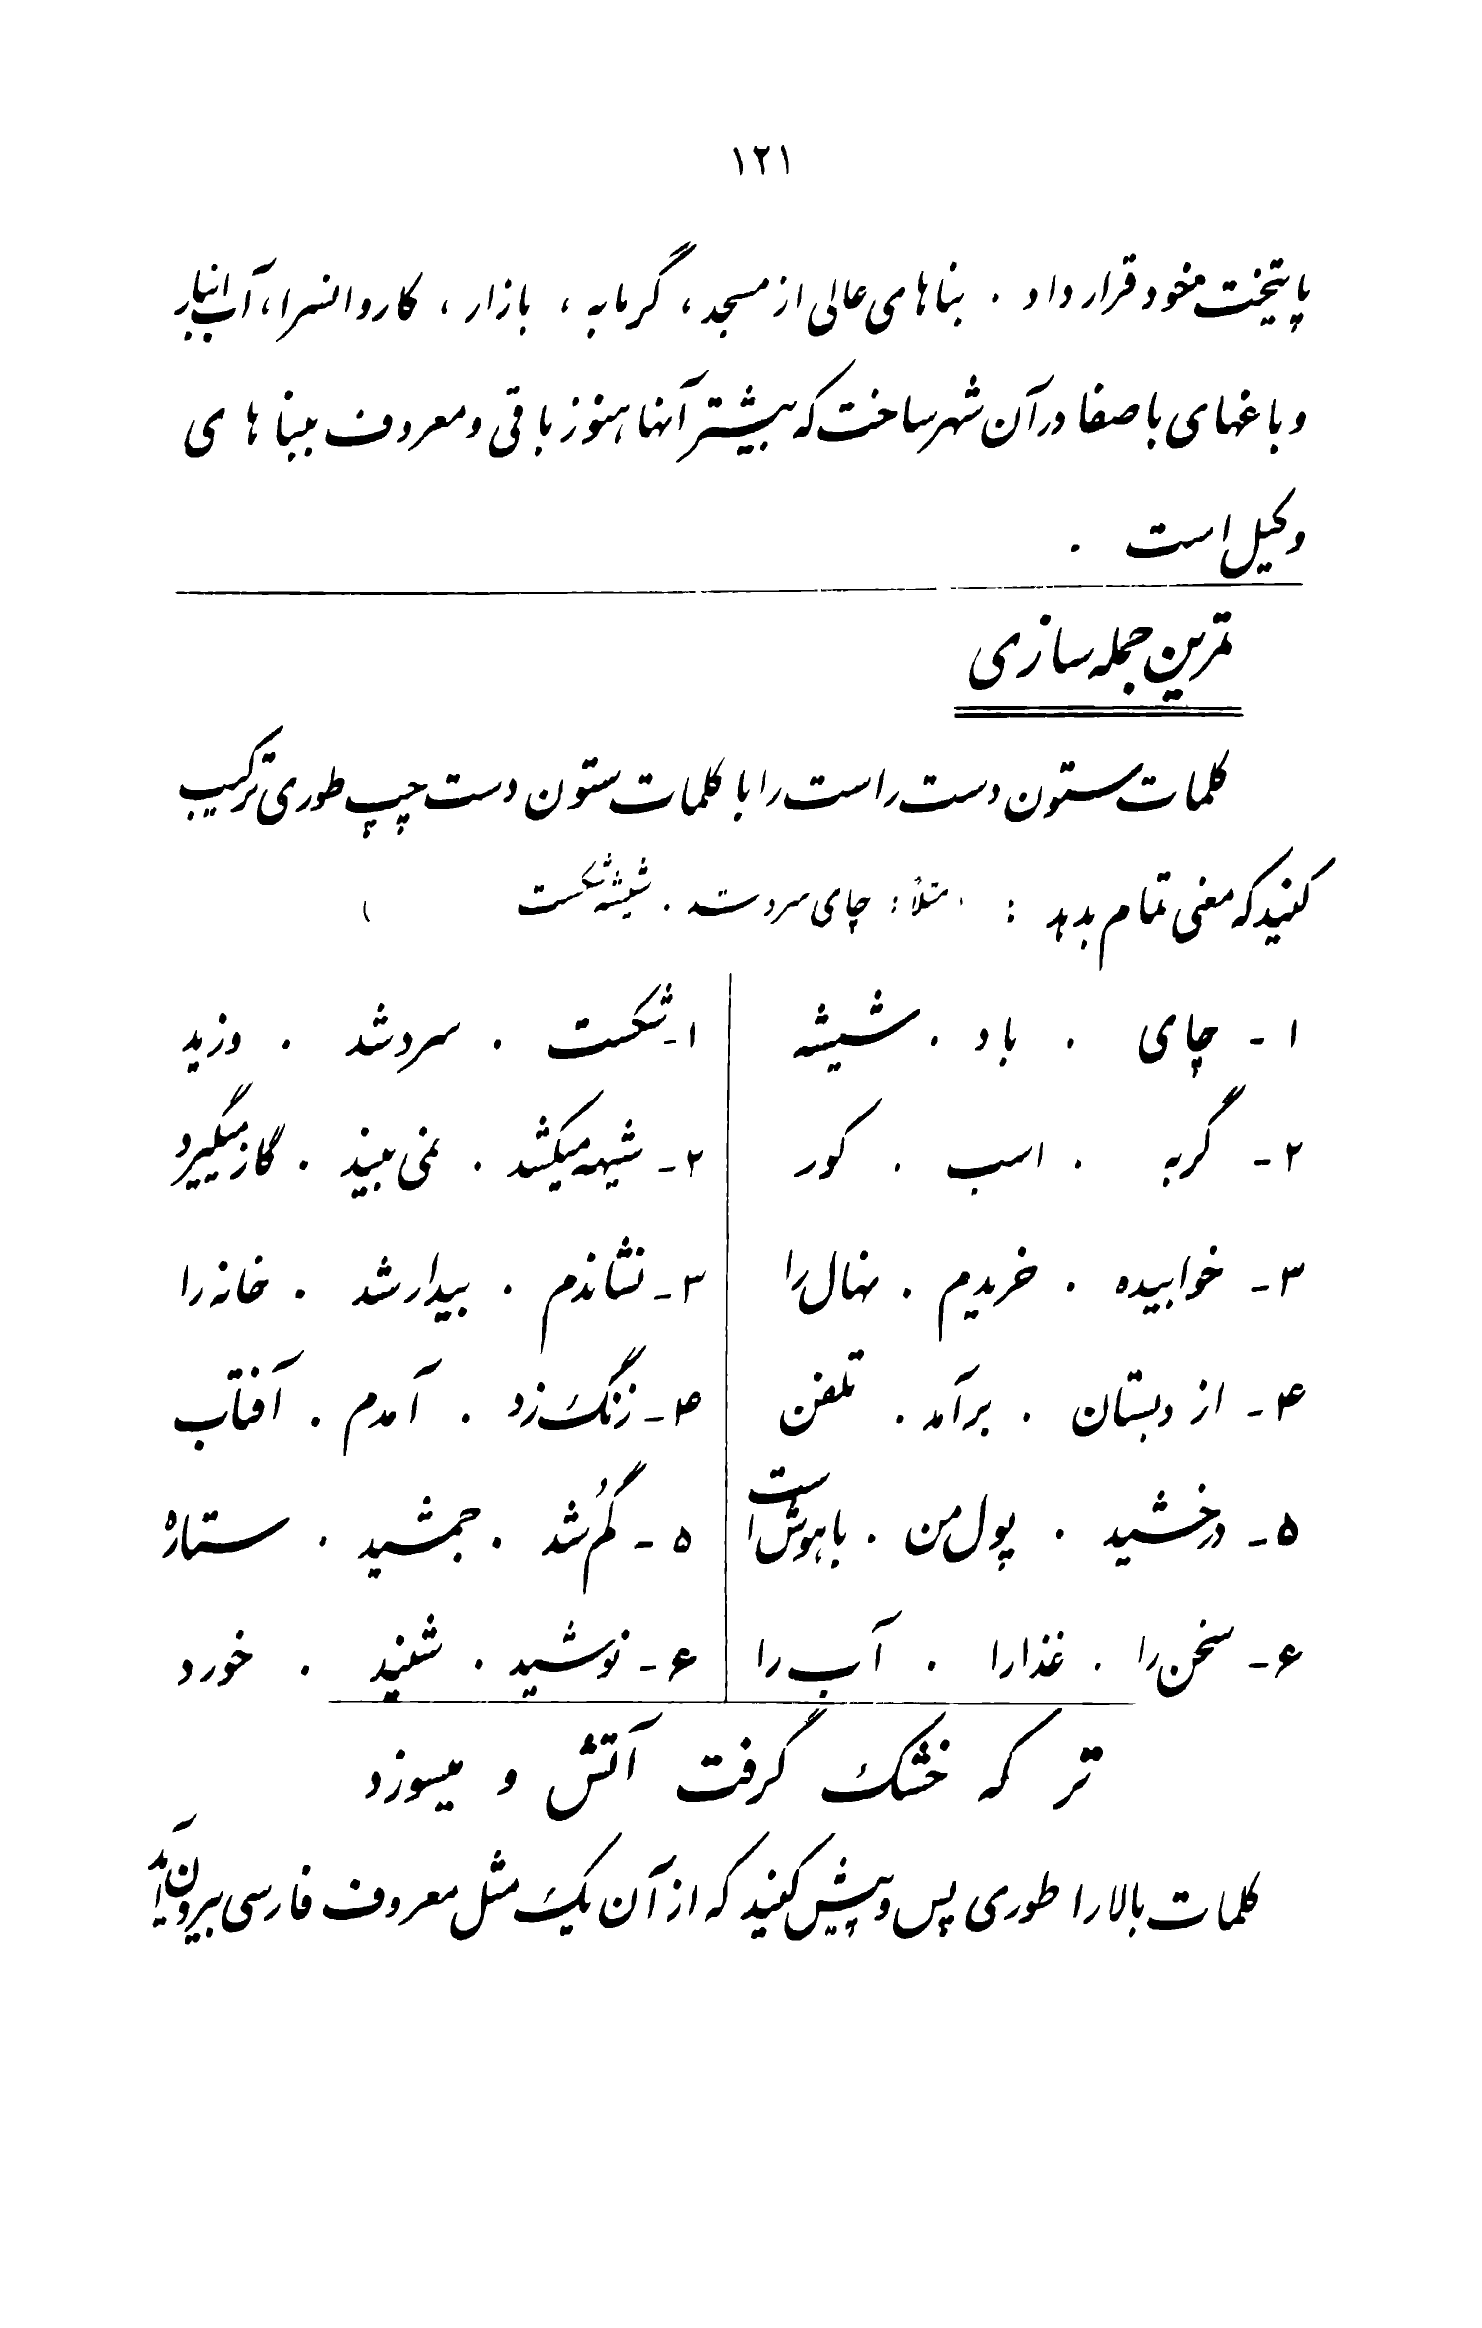 ۱۲۱
پایتخت خود قرار داد . بناهای عالی از مسجد ، گرمابه ، بازار ، کاروانسرا ، آب انبار
و باغهای باصفا در آن شهر ساخت که بیشتر آنها هنوز باقی و معروف ببناهای
وکیل است .
تمرین جمله سازی
کلمات ستون دست راست را با کلمات ستون دست چپ طوری ترکیب
کنید که معنی تمام بدهد : ( مثلاً : چای سرد شد . شیشه شکست )
۱ - چای . باد . شیشه
۱ - شکست . سرد شد . وزید
۲ - گربه . اسب . کور
۲ - شیهه میکشد . نمی بیند . گاز میگیرد
۳ - خوابیده . خریدم . نهال را
۳ - نشاندم . بیدار شد . خانه را
۴ - از دبستان . برآمد . تلفن
۴ - زنگ زد . آمدم . آفتاب
۵ - درخشید . پول من . باهوش است
۵ - گُم شد . جمشید . ستاره
۶ - سخن را . غذا را . آب را
۶ - نوشید . شنید . خورد
تر که خشک گرفت آتش و میسوزد
کلمات بالا را طوری پس و پیش کنید که از آن یک مثل معروف فارسی بیرون آید